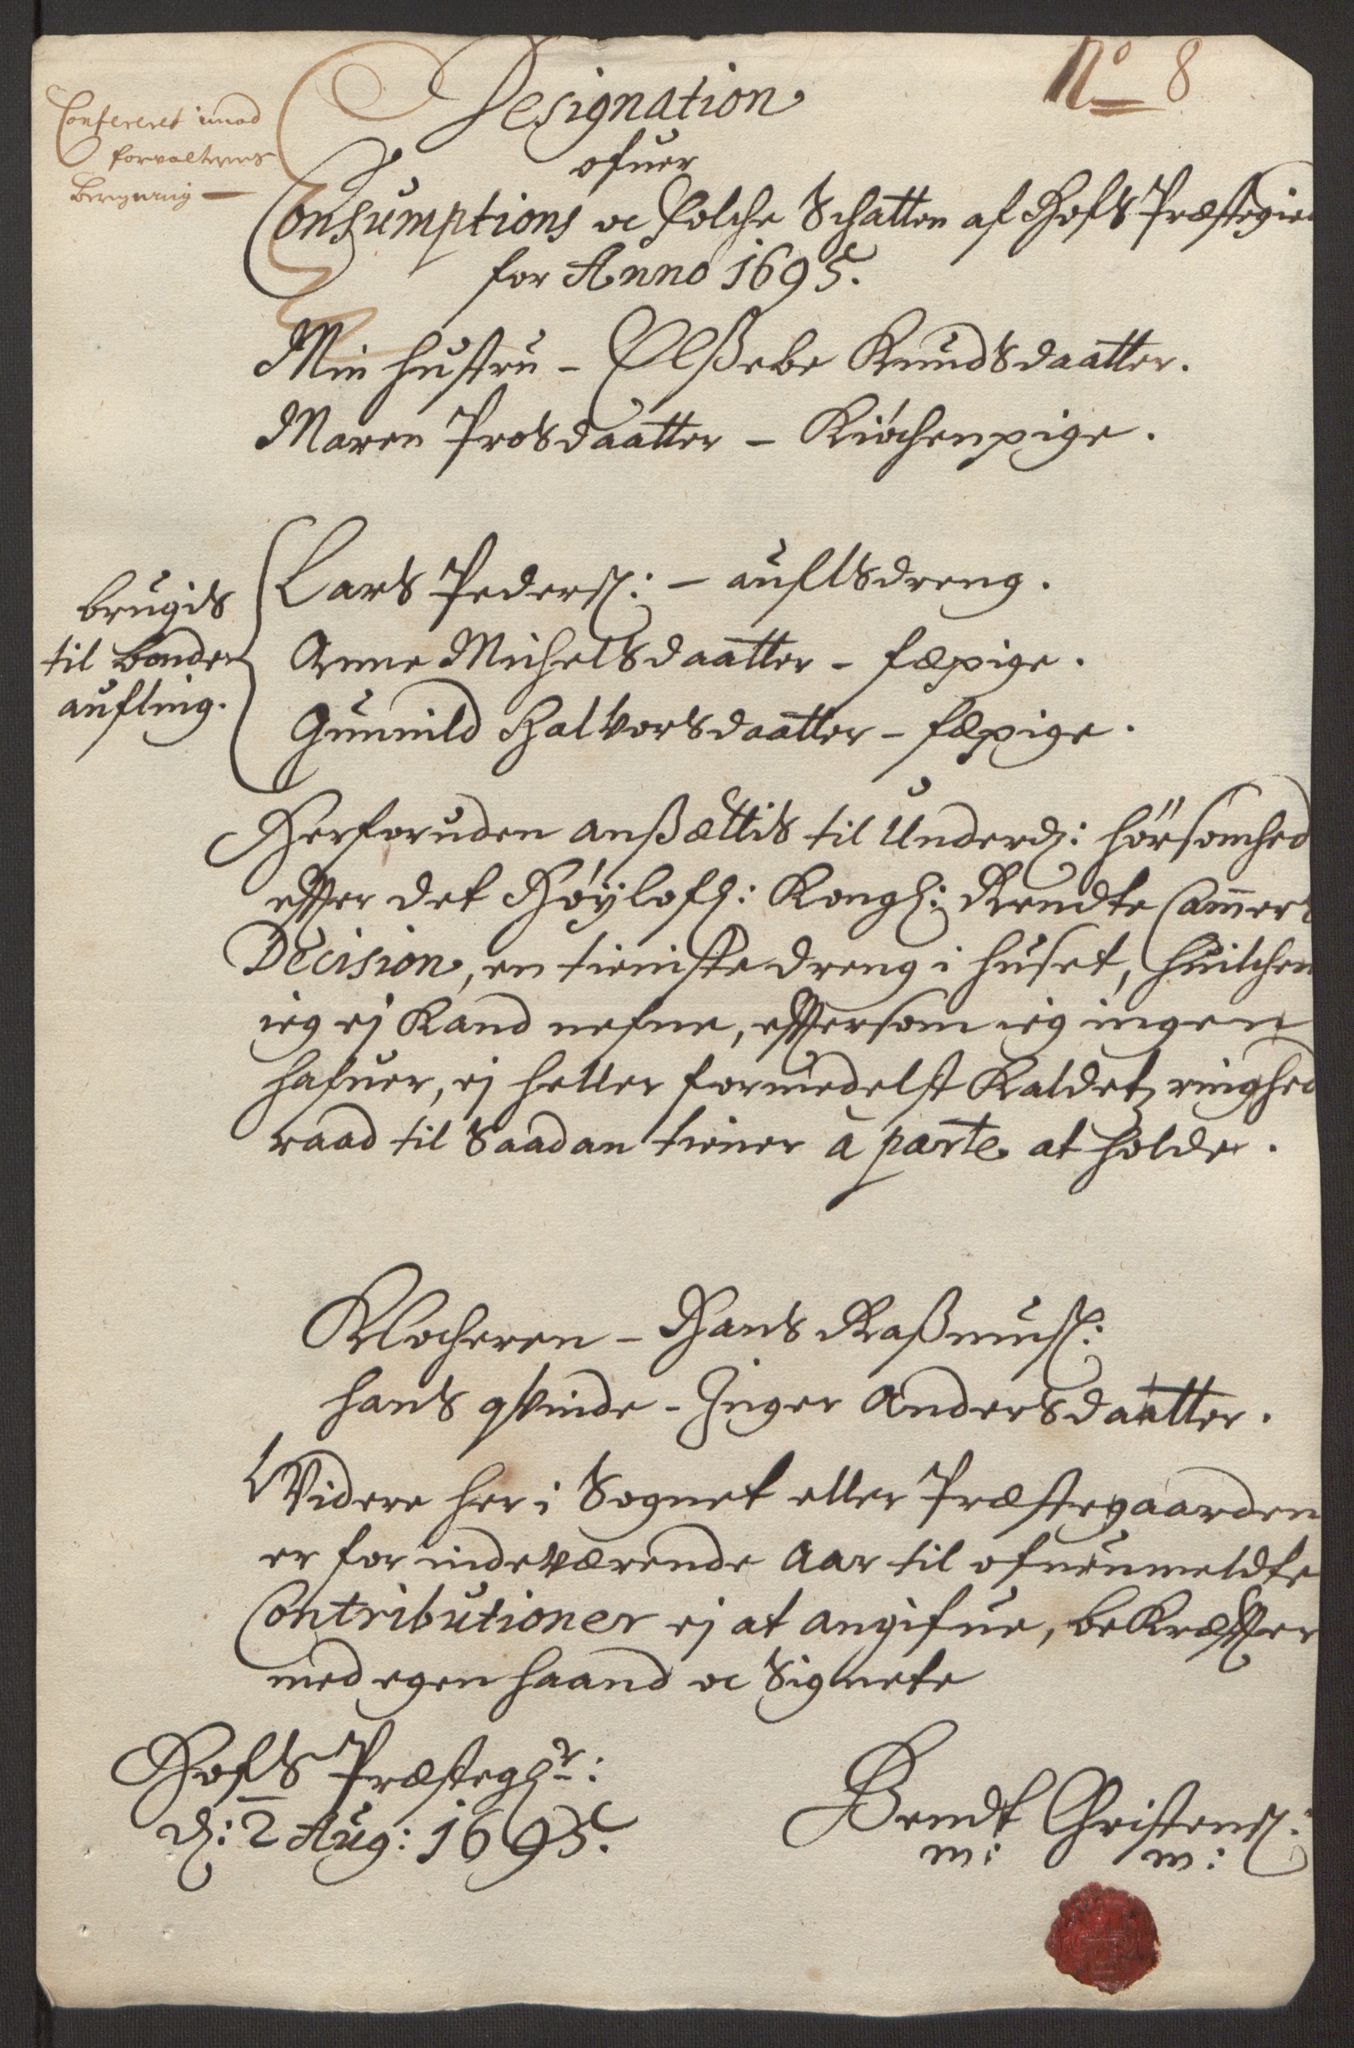 No 8
Confereret imod
forvalterens
Beregning —
Designation
ofuer
Consumptions oc Folche Schatten af Hofs Præstegield
for Anno 1695.
Min hustru - Elßebe Knudsdaatter.
Maren Prosdaatter - Kiöchenpige.
brugis
til bonde
aufling.
Lars Peders: - auflsdreng.
Anne Michelsdaatter - fæpige.
Gunnild Halvorsdaatter - fæpige.
Herforuden anßættis til Underd: hörsomhed
effter det Höylofl: Kongl: Rendte Cammers
Decision, en tieniste dreng i huset, huilchen
ieg ej kand nefne, effersom ieg ingen
hafuer, ej heller formedelst kaldets ringhed
raad til saadan tiener à parte at holde.
Klocheren - Hans Raßmus:
hans qvinde - Inger Andersdaatter.
Videre her i Sognet eller Præstegaarden
er for indeværende Aar til ofuenmeldte
Contributioner ej at angifue, bekræffter
med egen haand oc Signete
Hofs Præstegr:
d: 2 Aug: 1695.
Bendt Christens:
m: m: